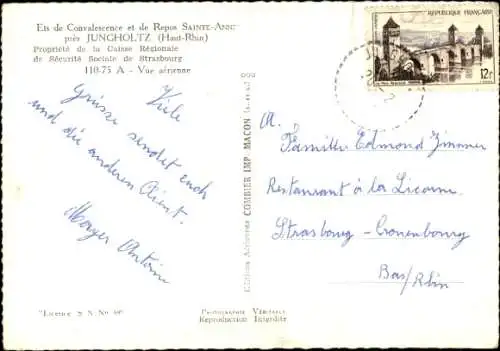 Ets de Convalescence et de Repos SAINTE-ANNE
près JUNGHOLTZ (Haut-Rhin)
Propriété de la Caisse Régionale
de Sécurité Sociale de Strasbourg
110-75 A - Vue aérienne
Viele
Grüsse sendet euch
und die anderen
Moyer Antoine
"Licence S. N. No
Editions Aériennes COMBIER IMP. MACON
PHOTOGRAPHIE VÉRITABLE
Reproduction Interdite
REPUBLIQUE FRANÇAISE
12f
A.
Famille Edmond Zimmer
Restaurant à la Licorne
Strasbourg - Cronenbourg
Bas/Rhin